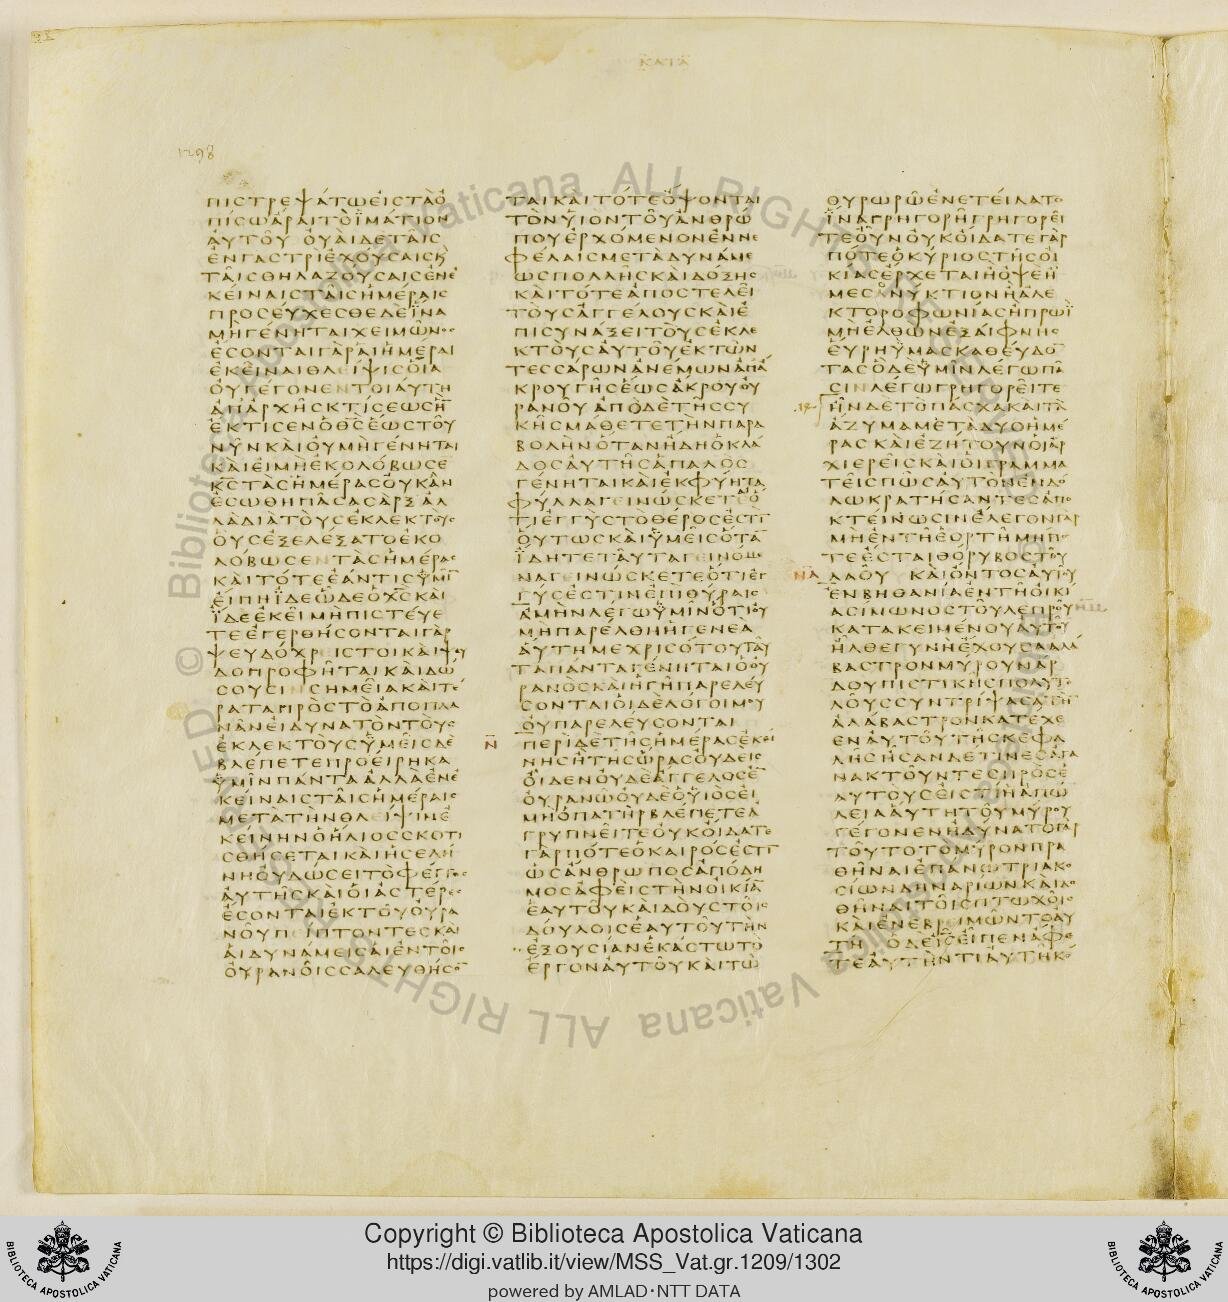 ΚΑΤΑ
1298
ΠΙСΤΡΕΨΑΤΩΕΙСΤΑΟ
ΠΙСΩΑΡΑΙΤΟΪΜΑΤΙΟΝ
ΑΥΤΟΥ ΟΥΑΙΔΕΤΑΙС
ΕΝΓΑСΤΡΙΕΧΟΥСΑΙСΚ
ΤΑΙСΘΗΛΑΖΟΥСΑΙСΕΝΕ
ΚΕΙΝΑΙСΤΑΙСΗΜΕΡΑΙС
ΠΡΟСΕΥΧΕСΘΕΔΕΪΝΑ
ΜΗΓΕΝΗΤΑΙΧΕΙΜΩΝΟС
ΕСΟΝΤΑΙΓΑΡΑΙΗΜΕΡΑΙ
ΕΚΕΙΝΑΙΘΛΕΙΨΙСΟΙΑ
ΟΥΓΕΓΟΝΕΝΤΟΙΑΥΤΗ
ΑΠΑΡΧΗСΚΤΙСΕΩСΗ̅
ΕΚΤΙСΕΝΟΘ̅С̅ΕΩСΤΟΥ
ΝΥΝΚΑΙΟΥΜΗΓΕΝΗΤΑΙ
ΚΑΙΕΙΜΗΕΚΟΛΟΒΩСΕ̅
Κ̅С̅ΤΑСΗΜΕΡΑСΟΥΚΑΝ
ΕСΩΘΗΠΑСΑСΑΡΞΑΛ
ΛΑΔΙΑΤΟΥСΕΚΛΕΚΤΟΥС
ΟΥСΕΞΕΛΕΞΑΤΟΕΚΟ
ΛΟΒΩСΕΝΤΑСΗΜΕΡΑС
ΚΑΙΤΟΤΕΕΑΝΤΙСΫΜΙ̅
ΕΙΠΗΪΔΕΩΔΕΟΧ̅С̅ΚΑΙ
ΪΔΕΕΚΕΙΜΗΠΙСΤΕΥΕ
ΤΕΕΓΕΡΘΗСΟΝΤΑΙΓΑΡ
ΨΕΥΔΟΧΡΕΙСΤΟΙΚΑΙΨΥ
ΔΟΠΡΟΦΗΤΑΙΚΑΙΔΩ
СΟΥСΙΝСΗΜΕΙΑΚΑΙΤΕ
ΡΑΤΑΠΡΟСΤΟΑΠΟΠΛΑ
ΝΑΝΕΙΔΥΝΑΤΟΝΤΟΥС
ΕΚΛΕΚΤΟΥСΫΜΕΙСΔΕ
ΒΛΕΠΕΤΕΠΡΟΕΙΡΗΚΑ
ΫΜΙΝΠΑΝΤΑΑΛΛΑΕΝΕ
ΚΕΙΝΑΙСΤΑΙСΗΜΕΡΑΙС
ΜΕΤΑΤΗΝΘΛΕΙΨΙΝΕ
ΚΕΙΝΗΝΟΗΛΙΟССΚΟΤΙ
СΘΗСΕΤΑΙΚΑΙΗСΕΛΗ
ΝΗΟΥΔΩСΕΙΤΟΦΕΓΓΟС
ΑΥΤΗСΚΑΙΟΙΑСΤΕΡΕС
ΕСΟΝΤΑΙΕΚΤΟΥΟΥΡΑ
ΝΟΥΠΕΙΠΤΟΝΤΕСΚΑΙ
ΑΙΔΥΝΑΜΕΙСΑΙΕΝΤΟΙС
ΟΥΡΑΝΟΙССΑΛΕΥΘΗСΟ̅
ΤΑΙΚΑΙΤΟΤΕΟΨΟΝΤΑΙ
ΤΟΝΥΙΟΝΤΟΥΑΝΘΡΩ
ΠΟΥΕΡΧΟΜΕΝΟΝΕΝΝΕ
ΦΕΛΑΙСΜΕΤΑΔΥΝΑΜΕ
ΩСΠΟΛΛΗСΚΑΙΔΟΞΗС
ΚΑΙΤΟΤΕΑΠΟСΤΕΛΕΙ
ΤΟΥСΑΓΓΕΛΟΥСΚΑΙΕ
ΠΙСΥΝΑΞΕΙΤΟΥСΕΚΛΕ
ΚΤΟΥСΑΥΤΟΥΕΚΤΩΝ
ΤΕССΑΡΩΝΑΝΕΜΩΝΑΠΑ
ΚΡΟΥΓΗСΕΩСΑΚΡΟΥΟΥ
ΡΑΝΟΥΑΠΟΔΕΤΗССΥ
ΚΗСΜΑΘΕΤΕΤΗΝΠΑΡΑ
ΒΟΛΗΝΟΤΑΝΗΔΗΟΚΛΑ
ΔΟСΑΥΤΗСΑΠΑΛΟС
ΓΕΝΗΤΑΙΚΑΙΕΚΦΥΗΤΑ
ΦΥΛΛΑΓΕΙΝΩСΚΕΤΕΟ
ΤΙΕΓΓΥСΤΟΘΕΡΟСΕСΤΙ̅
ΟΥΤΩСΚΑΙΫΜΕΙСΟΤΑ̅
ΪΔΗΤΕΤΑΥΤΑΓΕΙΝΟΜΕ
ΝΑΓΕΙΝΩСΚΕΤΕΟΤΙΕΓ
ΓΥСΕСΤΙΝΕΠΙΘΥΡΑΙС
ΑΜΗΝΛΕΓΩΫΜΙΝΟΤΙΟΥ
ΜΗΠΑΡΕΛΘΗΗΓΕΝΕΑ
ΑΥΤΗΜΕΧΡΙСΟΤΟΥΤΑΥ
ΤΑΠΑΝΤΑΓΕΝΗΤΑΙΟΟΥ
ΡΑΝΟСΚΑΙΗΓΗΠΑΡΕΛΕΥ
СΟΝΤΑΙΟΙΔΕΛΟΓΟΙΜΟΥ
ΟΥΠΑΡΕΛΕΥСΟΝΤΑΙ
Ν̅ ΠΕΡΙΔΕΤΗСΗΜΕΡΑСΕΚΕΙ
ΝΗСΗΤΗСΩΡΑСΟΥΔΕΙС
ΟΙΔΕΝΟΥΔΕΑΓΓΕΛΟСΕ̅
ΟΥΡΑΝΩΟΥΔΕΟΥΙΟСΕΙ
ΜΗΟΠΑΤΗΡΒΛΕΠΕΤΕΑ
ΓΡΥΠΝΕΙΤΕΟΥΚΟΙΔΑΤΕ
ΓΑΡΠΟΤΕΟΚΑΙΡΟСΕСΤΙ̅
ΩСΑΝΘΡΩΠΟСΑΠΟΔΗ
ΜΟСΑΦΕΙСΤΗΝΟΙΚΙΑ̅
ΕΑΥΤΟΥΚΑΙΔΟΥСΤΟΙС
ΔΟΥΛΟΙСΕΑΥΤΟΥΤΗΝ
ΕΞΟΥСΙΑΝΕΚΑСΤΩΤΟ
ΕΡΓΟΝΑΥΤΟΥΚΑΙΤΩ
ΘΥΡΩΡΩΕΝΕΤΕΙΛΑΤΟ
ΪΝΑΓΡΗΓΟΡΗΓΡΗΓΟΡΕΙ
ΤΕΟΥΝΟΥΚΟΙΔΑΤΕΓΑΡ
ΠΟΤΕΟΚΥΡΙΟСΤΗСΟΙ
ΚΙΑСΕΡΧΕΤΑΙΗΟΨΕΗ
ΜΕСΟΝΥΚΤΙΟΝΗΑΛΕ
ΚΤΟΡΟΦΩΝΙΑСΗΠΡΩΪ
ΜΗΕΛΘΩΝΕΞΑΙΦΝΗС
ΕΥΡΗΫΜΑСΚΑΘΕΥΔΟ̅
ΤΑСΟΔΕΫΜΙΝΛΕΓΩΠΑ
СΙΝΛΕΓΩΓΡΗΓΟΡΕΙΤΕ
ΗΝΔΕΤΟΠΑСΧΑΚΑΙΤΑ
ΑΖΥΜΑΜΕΤΑΔΥΟΗΜΕ
ΡΑСΚΑΙΕΖΗΤΟΥΝΟΙΑΡ
ΧΙΕΡΕΙСΚΑΙΟΙΓΡΑΜΜΑ
ΤΕΙСΠΩСΑΥΤΟΝΕΝΔΟ
ΛΩΚΡΑΤΗСΑΝΤΕСΑΠΟ
ΚΤΕΙΝΩСΙΝΕΛΕΓΟΝΓΑΡ
ΜΗΕΝΤΗΕΟΡΤΗΜΗΠΟ
ΤΕΕСΤΑΙΘΟΡΥΒΟСΤΟΥ
ΝΑ ΛΑΟΥ ΚΑΙΟΝΤΟСΑΥΤΟΥ
ΕΝΒΗΘΑΝΙΑΕΝΤΗΟΙΚΙ
ΑСΙΜΩΝΟСΤΟΥΛΕΠΡΟΥ
ΚΑΤΑΚΕΙΜΕΝΟΥΑΥΤΟΥ
ΗΛΘΕΓΥΝΗΕΧΟΥСΑΑΛΑ
ΒΑСΤΡΟΝΜΥΡΟΥΝΑΡ
ΔΟΥΠΙСΤΙΚΗСΠΟΛΥΤΕ
ΛΟΥССΥΝΤΡΙΨΑСΑΤΗ̅
ΑΛΑΒΑСΤΡΟΝΚΑΤΕΧΕ
ΕΝΑΥΤΟΥΤΗСΚΕΦΑ
ΛΗСΗСΑΝΔΕΤΙΝΕСΑΓΑ
ΝΑΚΤΟΥΝΤΕСΠΡΟСΕ
ΑΥΤΟΥСΕΙСΤΙΗΑΠΩ
ΛΕΙΑΑΥΤΗΤΟΥΜΥΡΟΥ
ΓΕΓΟΝΕΝΗΔΥΝΑΤΟΓΑΡ
ΤΟΥΤΟΤΟΜΥΡΟΝΠΡΑ
ΘΗΝΑΙΕΠΑΝΩΤΡΙΑΚΟ
СΙΩΝΔΗΝΑΡΙΩΝΚΑΙΔΟ
ΘΗΝΑΙΤΟΙСΠΤΩΧΟΙС
ΚΑΙΕΝΕΒΡΕΙΜΩΝΤΟΑΥ
ΤΗ ΟΔΕΙ̅С̅ΕΙΠΕΝΑΦΕ
ΤΕΑΥΤΗΝΤΙΑΥΤΗΚΟ
Copyright © Biblioteca Apostolica Vaticana
https://digi.vatlib.it/view/MSS_Vat.gr.1209/1302
powered by AMLAD·NTT DATA